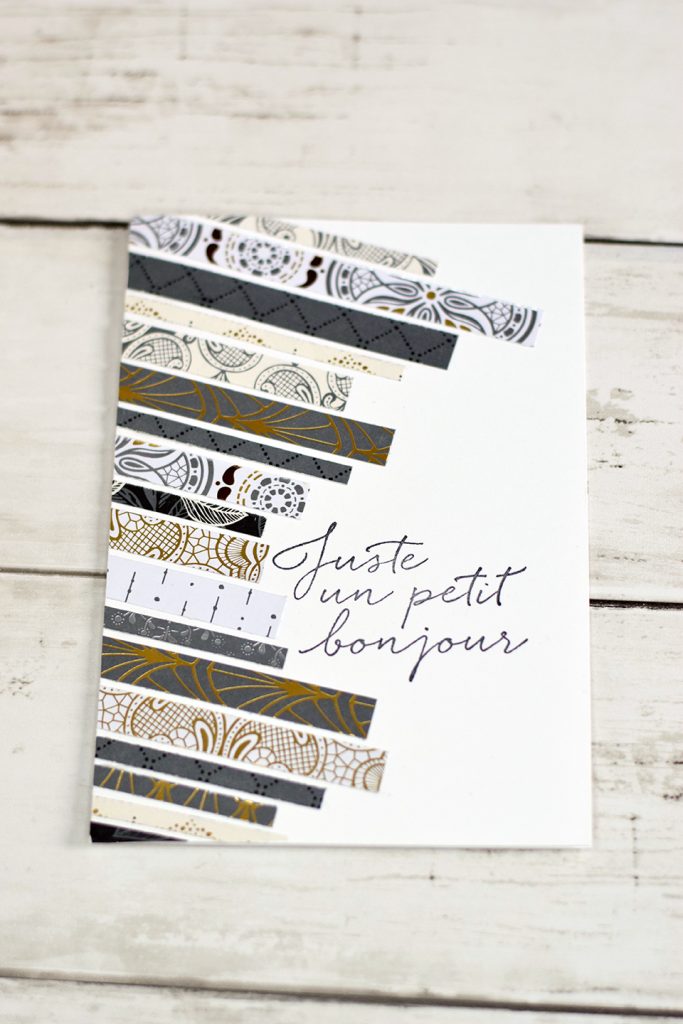 Juste
un petit
bonjour